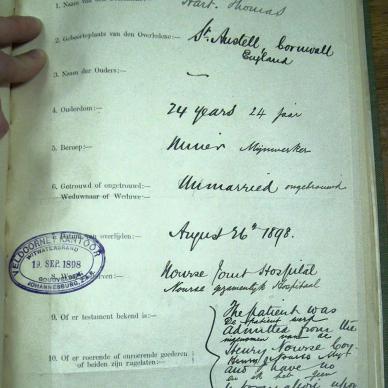 1. Naam van den
Hart. Thomas
2. Geboorteplaats van den Overledene:—
St. Austell, Cornwall
England
3. Namen der Ouders:—
—
4. Ouderdom:—
24 years 24 jaar
5. Beroep:—
Miner Mijnwerker
6. Getrouwd of ongetrouwd:—
Unmarried ongetrouwd
Weduwnaar of Weduwe:—
Datum van overlijden:—
August 26th 1898.
VELDCORNETKANTOOR
WITWATERSRAND
19 SEP. 1898
JOHANNESBURG, Z.A.R.
8.
Nourse Joint Hospital
Nourse gezamenlijk Hospitaal
9. Of er testament bekend is:—
The patient was
De patient werd
admitted from the
Henry Nourse Coy
Henry Nourse My
and I have no
en ik heb geen
10. Of er roerende of onroerende goederen
of beiden zijn nagelaten:—